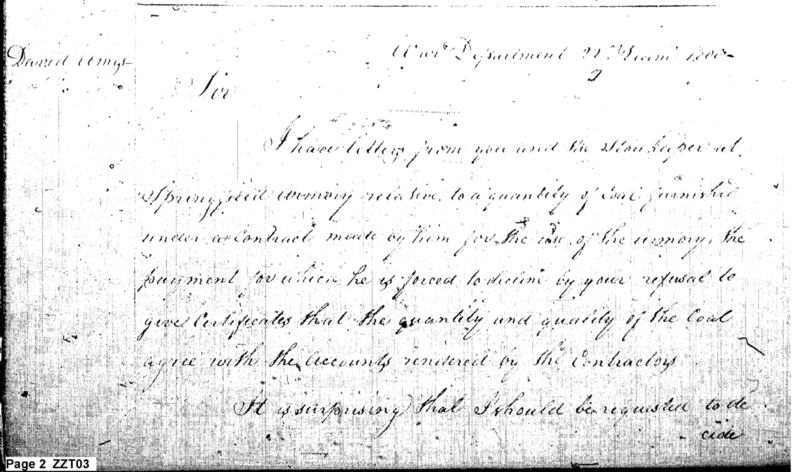 War Department 22nd Decem 1800
David Ames
Sir
I have letters from you and the Storekeeper at
Springfield armory relative to a quantity of Coal furnished
under a Contract made by him for the use of the armory, the
payment for which he is forced to decline by your refusal to
give Certificates that the quantity and quality of the Coal
agree with the accounts rendered by the Contractors
It is surprising that I should be requested to de
cide
Page 2 ZZT03